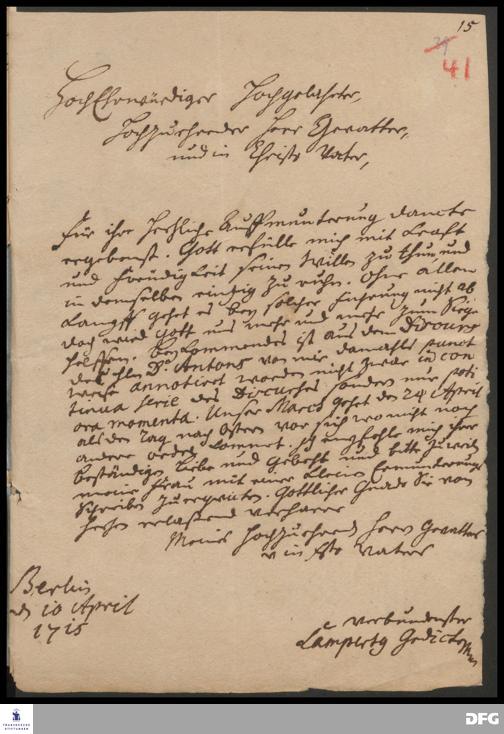 15
41
HochEhrwürdiger Hochgelahrter,
Hochzuehrender Herr Gevatter,
und in Christo Vater,
Für ihre herzliche Auffmunterung dancke
ergebenst. Gott erfülle mich mit Krafft
und Freudigkeit seinen Willen zu thun und
in demselben eintzig zu ruhn. Ohne allen
Kampff gehet es bey solcher Führung nicht ab
doch wird Gott uns mehr und mehr zum Siege
helffen. Beykommendes ist aus dem Discours
des Hln D. Antons von mir damahls punct
weise annotiret worden nicht zwar in con
tinua serie des Discurses sondern nur poti
ora momenta. Unser March gehet den 24 April
als den Tag nach Ostern vor sich wo nicht noch
andere ordre kommet. Ich empfehle mich ihrer
beständigen Liebe und Gebeht und bitte zuweilen
meine Frau mit einer kleinen Ermunterungs
Schreiben zu erquicken. Göttlicher Gnade Sie von
Herzen erlassend verharre
Meines Hochzuehrend Herrn Gevatter
u in Xsto Vaters
Berlin
d 10 April
1715
verbundenster
Lampertg Gedicke
FRANCKESCHE
STIFTUNGEN
DFG